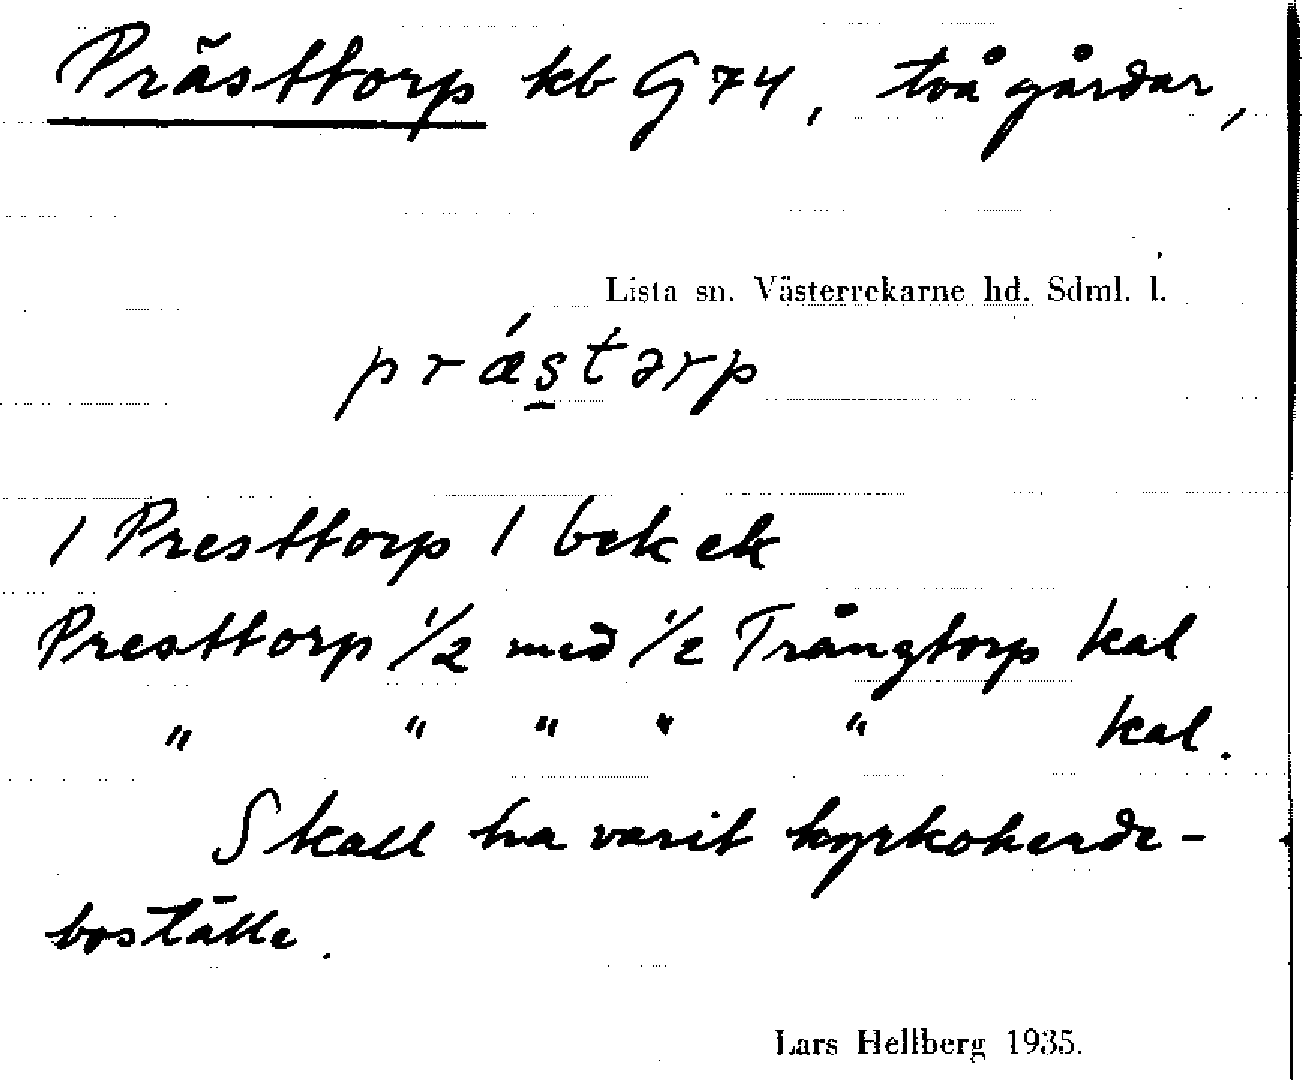 Prästtorp kb G 74, två gårdar,
Lista sn. Västerrekarne hd. Sdml. l.
prǽs̲tərp
1 Presttorp 1 bek ek
Presttorp 1/2 med 1/2 Trångtorp kal
" " " " " kal.
Skall ha varit kyrkoherde-
boställe.
Lars Hellberg 1935.